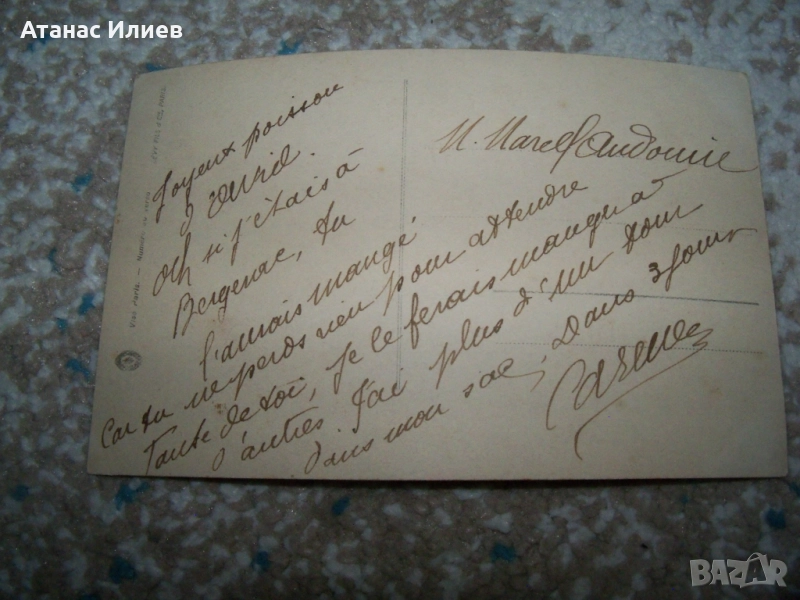 Атанас Илиев
Joyeux poisson
d'avril.
Och si j'étais à
Bergerac, tu
l'aurais mangé
Car tu ne perds rien pour attendre
Toute de toi, je le ferais manger à
d'autres. J'ai plus d'un tour
dans mon sac; Dans 3 jours
M. Marcel
BAZAR